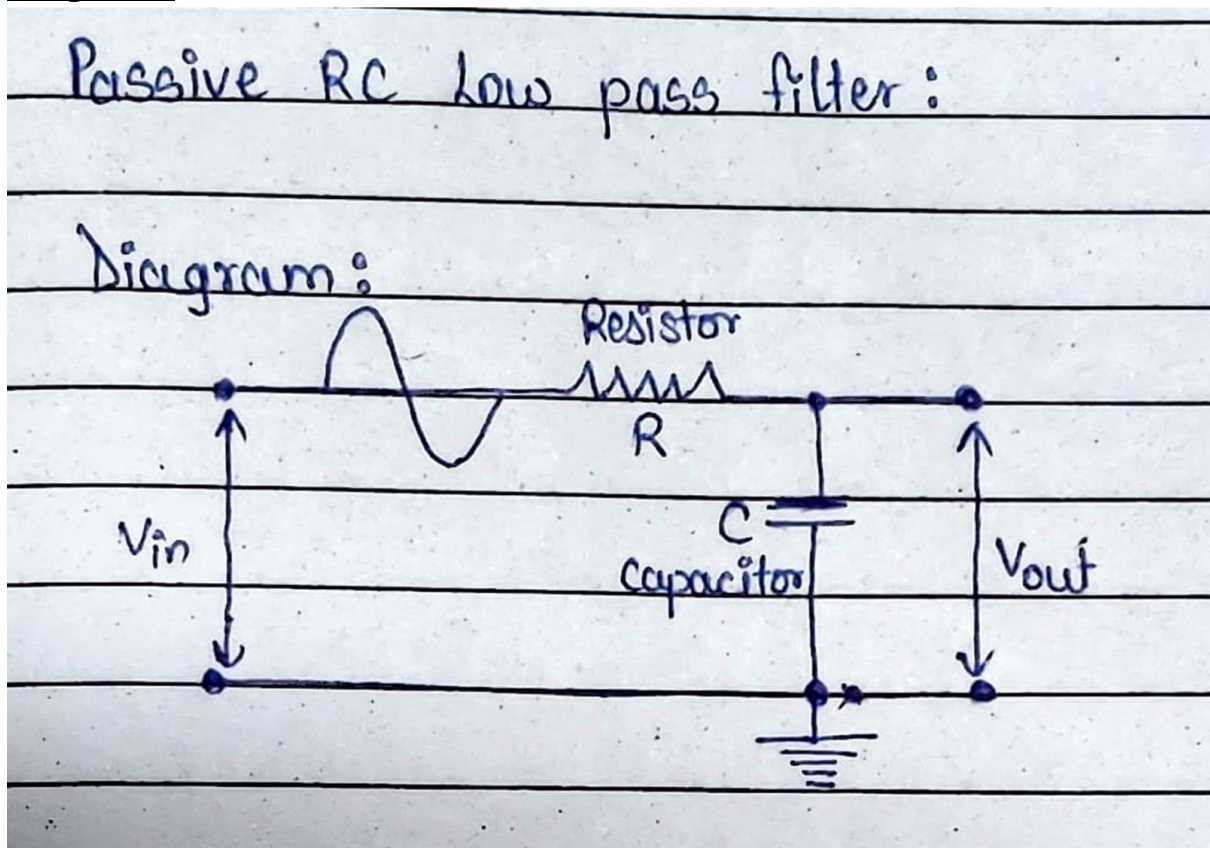 Passive RC Low pass filter:
Diagram:
Resistor
R
C
capacitor
Vin
Vout